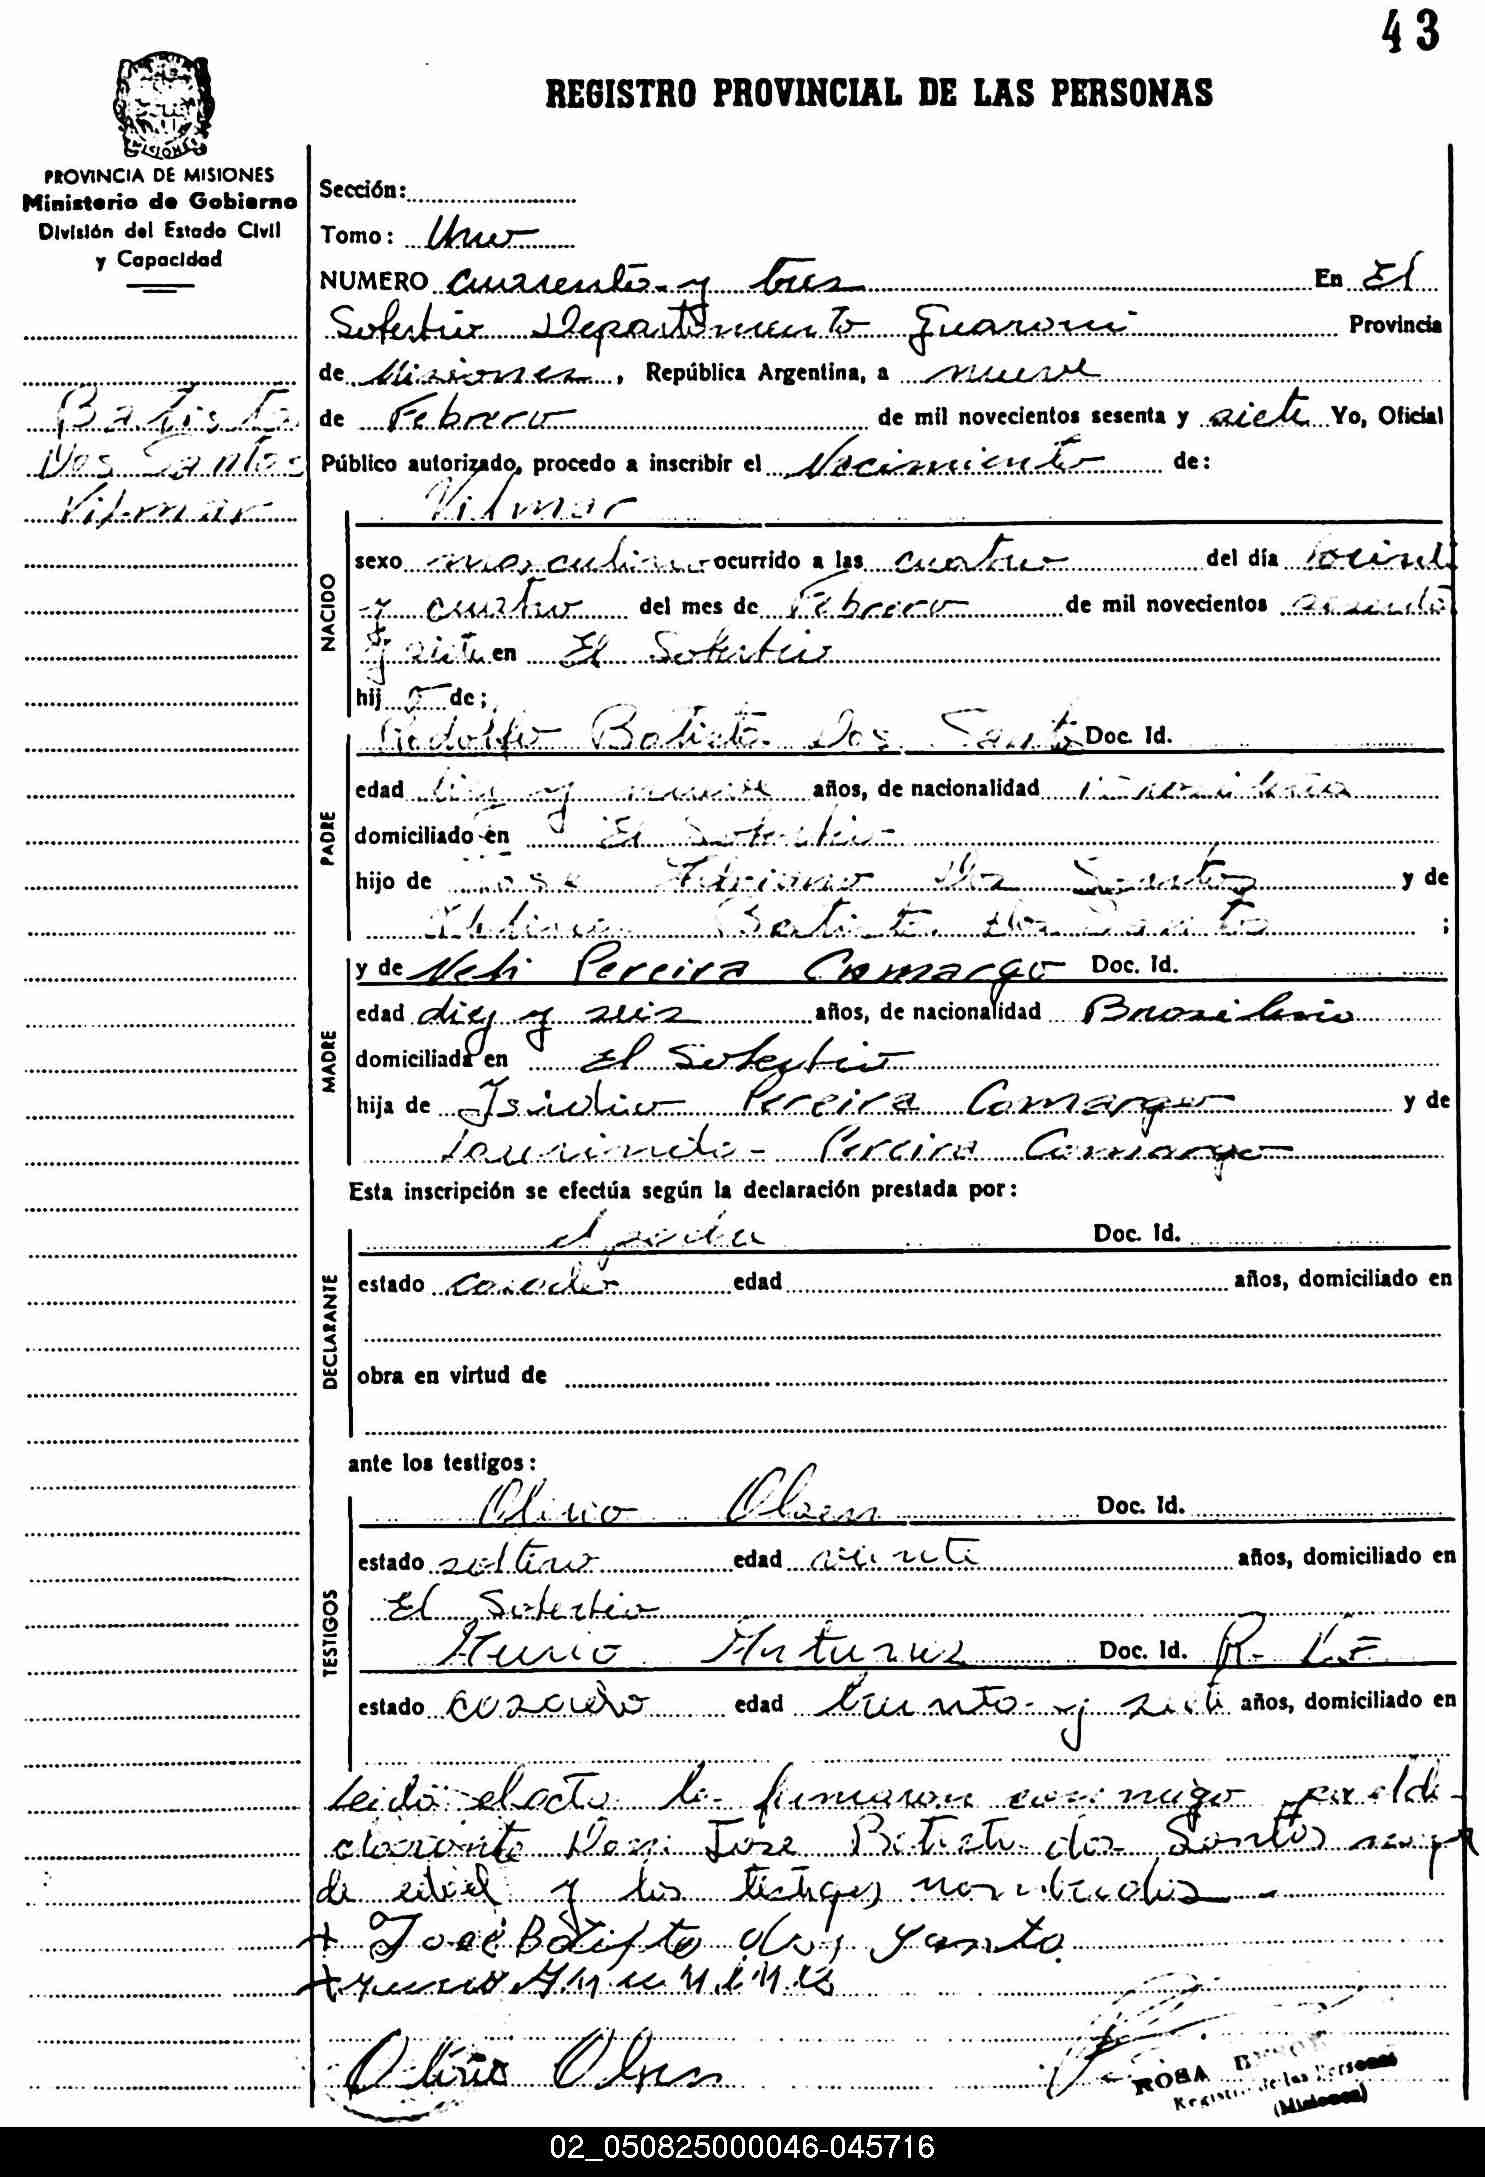 43
REGISTRO PROVINCIAL DE LAS PERSONAS
MISIONES
PROVINCIA DE MISIONES
Ministerio de Gobierno
División del Estado Civil
y Capacidad
Batista
Dos Santos
Vilmar
Sección:
Tomo: Uno
NUMERO cuarenta y tres En El
Soberbio Departamento Guarani Provincia
de Misiones, República Argentina, a nueve
de Febrero de mil novecientos sesenta y siete Yo, Oficial
Público autorizado, procedo a inscribir el Nacimiento de:
Vilmar
NACIDO
sexo masculino ocurrido a las cuatro del día
y cuatro del mes de Febrero de mil novecientos sesenta
y siete en El Soberbio
hij o de;
PADRE
Rodolfo Batista Dos Santos Doc. Id.
edad diez y nueve años, de nacionalidad Brasileña
domiciliado en El Soberbio
hijo de Jose Adriano Dos Santos y de
Batista dos Santos ;
MADRE
y de Neli Pereira Camargo Doc. Id.
edad diez y seis años, de nacionalidad Brasileña
domiciliada en El Soberbio
hija de Pereira Camargo y de
Laurinda Pereira Camargo
Esta inscripción se efectúa según la declaración prestada por:
DECLARANTE
el padre Doc. Id.
estado casado edad años, domiciliado en
obra en virtud de
ante los testigos:
TESTIGOS
Olirio Olsen Doc. Id.
estado soltero edad veinte años, domiciliado en
El Soberbio
Doc. Id.
estado casado edad treinta y siete años, domiciliado en
Leida el acta la firmaron conmigo por el de
clarante Don Jose Batista dos Santos
de edad y los testigos nombrados
+ José Batista dos Santo
Olirio Olsen
ROSA
Registro de las Personas
(Misiones)
02_050825000046-045716